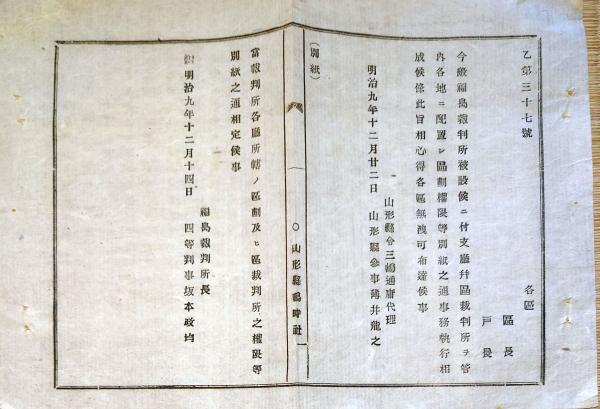 乙第三十七號
各區
區長
戶長
今般福島裁判所被設候ニ付支廳幷區裁判所ヲ管
內各地ニ配置シ區劃權限等別紙之通事務執行相
成候條此旨相心得各區無洩可布達候事
明治九年十二月廿二日
山形縣令三島通庸代理
山形縣參事薄井龍之
(別紙)
○山形縣鶴時社
當裁判所各廳所轄ノ區劃及ヒ區裁判所之權限等
別紙之通相定候事
明治九年十二月十四日
福島裁判所長
四等判事坂本政均